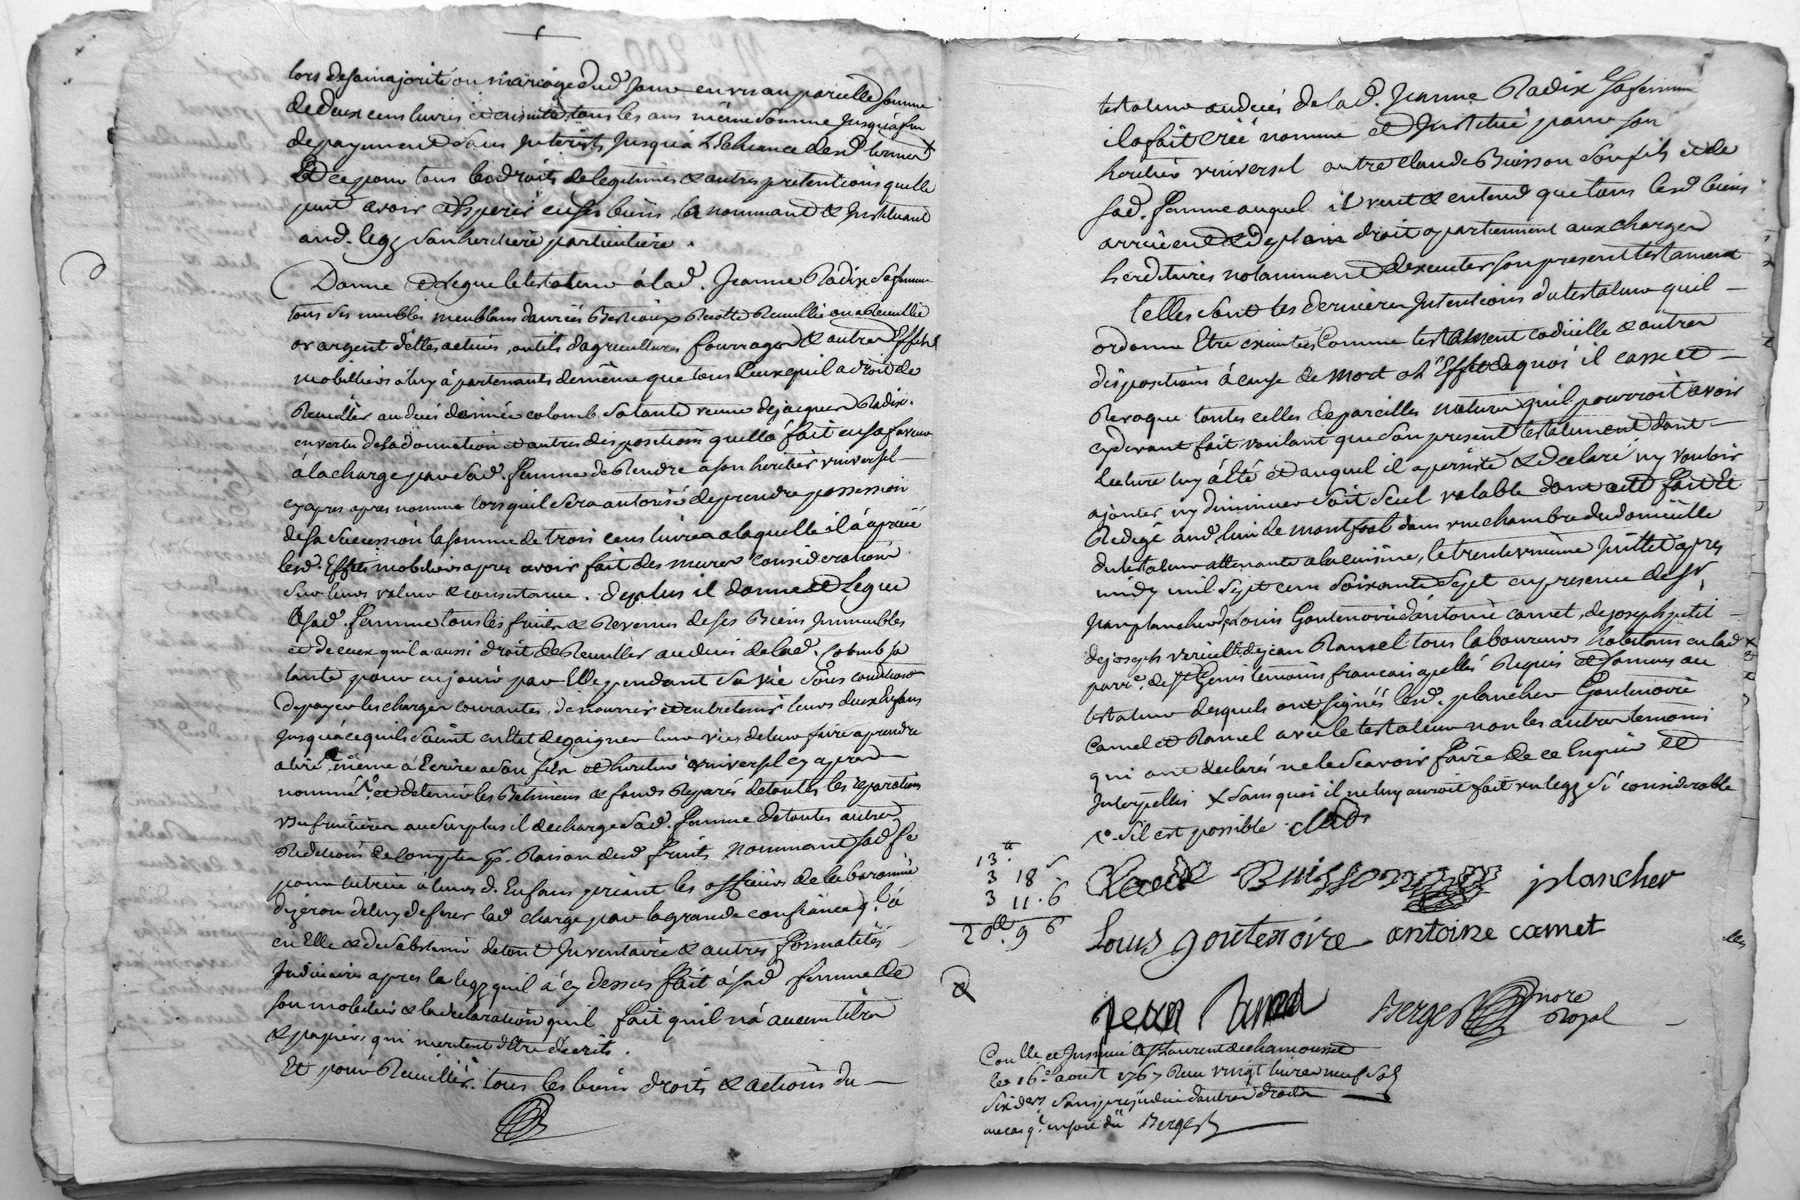 lors de sa majorité ou mariage dud. Jour en un an pareille somme
de deux cens livres et ensuite tous les ans même somme jusqu'a fin
de payement sans interests jusqu'a l'echeance desd. termes
Et ce pour tous les droits de legitimes & autres pretentions quelle
peut avoir & esperer en ses biens la nommant & instituant
aud. legz son heritiere particuliere.
Donne et legue le testateur à lad. Jeanne Radix sa femme
tous ses meubles meublans danrées Bestiaux Recolte Recuillie ou a Recuillie
or argent dettes actives, outils d'agricultures fourrages & autres Effets
mobilliers à luy apartenants de même que tous ceux quil a droit de
Recuillir au deces colomb sa tante veuve de jacques Radix.
en vertu de sa donnation et autres dispositions quella fait en sa faveur
à la charge par sad. femme de Rendre a son heritier universel
cy apres apres nommé lorsquil sera autorisé de prendre possession
de sa succession la somme de trois cens livres a laquelle il a aprecié
lesd. Effets mobiliers apres avoir fait des mures considerations
sur leurs valeur & consistance. De plus il donne et legue
a sad. femme tous les fruits & Revenus de ses Biens Immeubles
et de ceux quil a aussi droit de Recuillir au deces de lad. Colomb sa
tante pour en jouir par Elle pendant sa vie sous condition
de payer les charges courantes, de nourrir et entretenir leurs deux Enfans
jusqua ce quils soient en Etat de gaigner leur vie & de leur faire aprendre
a lire même à Ecrire a son fils & heritier universel cy apres
nommé, et de tenir les Batimens & fonds Reparés de toutes les reparations
usufruitieres au surplus il decharge sad. femme de toutes autres
Redditions de comptes pr. Raison desd. fruits nommant sad. fe
pour tutrice a leurs d. Enfans priant les officiers de la baronnie
d'yeron de luy deferer lad. charge par la grande confiance ql. a
en Elle & de s'abstenir de tout Inventaire & autres formalités
Judiciaires apres le legz quil a cy dessus fait à sad. femme de
son mobilier & la declaration quil fait quil n'a aucun titres
& papiers qui meritent d'Etre décrits.
Et pour Recuillir tous les biens droits & actions du
testateur au deces de lad. Jeanne Radix sa femme
il a fait créé nommé et Institué pour son
heritier universel autre claude Buisson son fils & de
sad. femme auquel il veut & entend que tous lesd. biens
arrivent & de plein droit apartiennent aux charges
hereditaires notamment d'executer son present testament
telles sont les dernieres Intentions du testateur quil
ordonne Etre executées Comme testament codicille & autres
dispositions à cause de mort a l'Effet de quoi il casse et
Revoque toutes celles de pareilles natures quil pourroit avoir
cy devant fait voulant que son present testament dont
lecture luy a été et auquel il a persisté & declaré n'y vouloir
ajouter ny diminuer soit seul valable dont acte fait et
Redigé aud. lieu de montfoal dans une chambre du domicille
du testateur attenante a la cuisine, le trente unieme Juillet apres
midy mil sept cens soixante sept en presence de Sr.
Jean plancher, Louis Goutenoire d'antoine camet, de joseph petit
de joseph vericelle de jean Ramel tous laboureurs habitans en lad.
parr. de St. Genis temoins francais apellés Requis et connus au
testateur desquels ont signés lesd. plancher Goutenoire
Camet et Ramel avec le testateur non les autres temoins
qui ont declarés ne le scavoir faire de ce Enquis et
Interpellés x sans quoi il ne luy auroit fait un legz si considerable
xo. sil est possible.
13.tt
3 18 s
3 11. 6
20tt. 9 6
Claude Buisson
plancher
Louis goutenoire antoine camet
jean Ramel
Berger nore Royal
Con.lle et Insinué a St Laurent de chamousset
le 16e. aout 1767 Reçu vingt livres neuf sols
six ders sans prejudice d'autres droits
au cas ql. en soit dû Berger